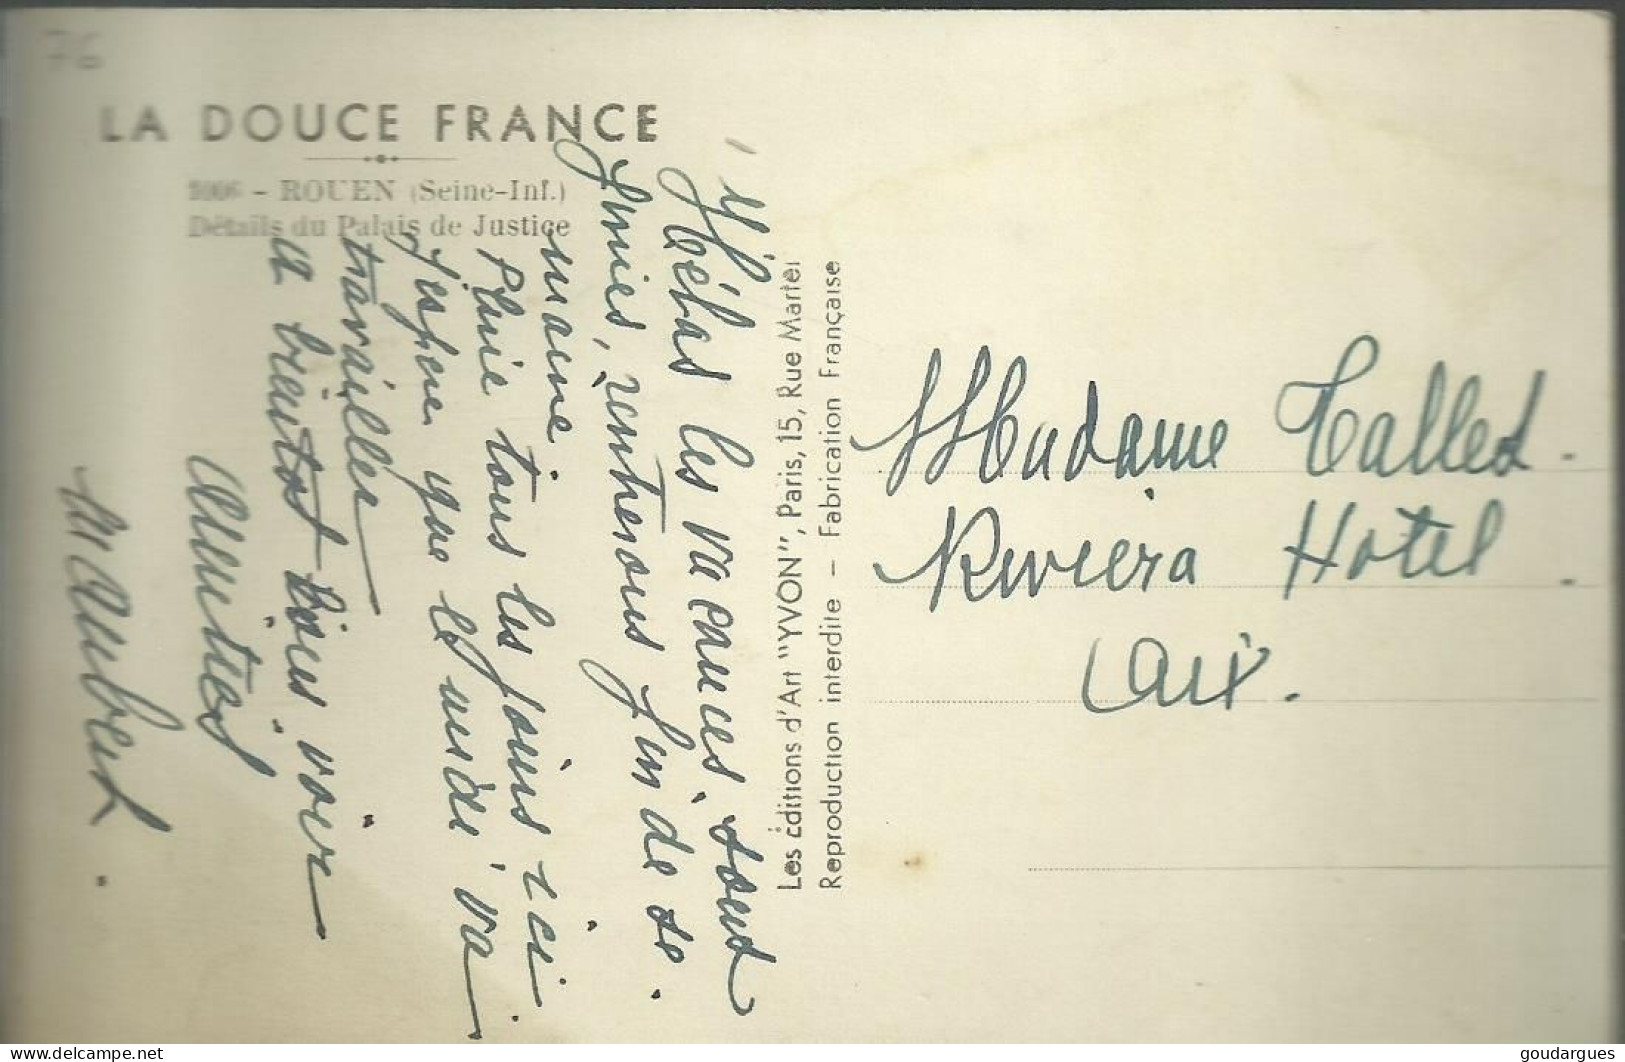 76
LA DOUCE FRANCE
1006 - ROUEN (Seine-Inf.)
Détails du Palais de Justice
Hélas les vacances sont
finies, rentrerons fin de se
maine.
Pluie tous les jours ici
J'espère que le midi va
travailler
a bientot vous voir
Amitiés
M Aubert.
Les éditions d'Art "YVON", Paris, 15, Rue Martel
Reproduction interdite – Fabrication Française
Madame Tallet.
Riviera Hotel.
Aix.
delcampe.net
goudargues